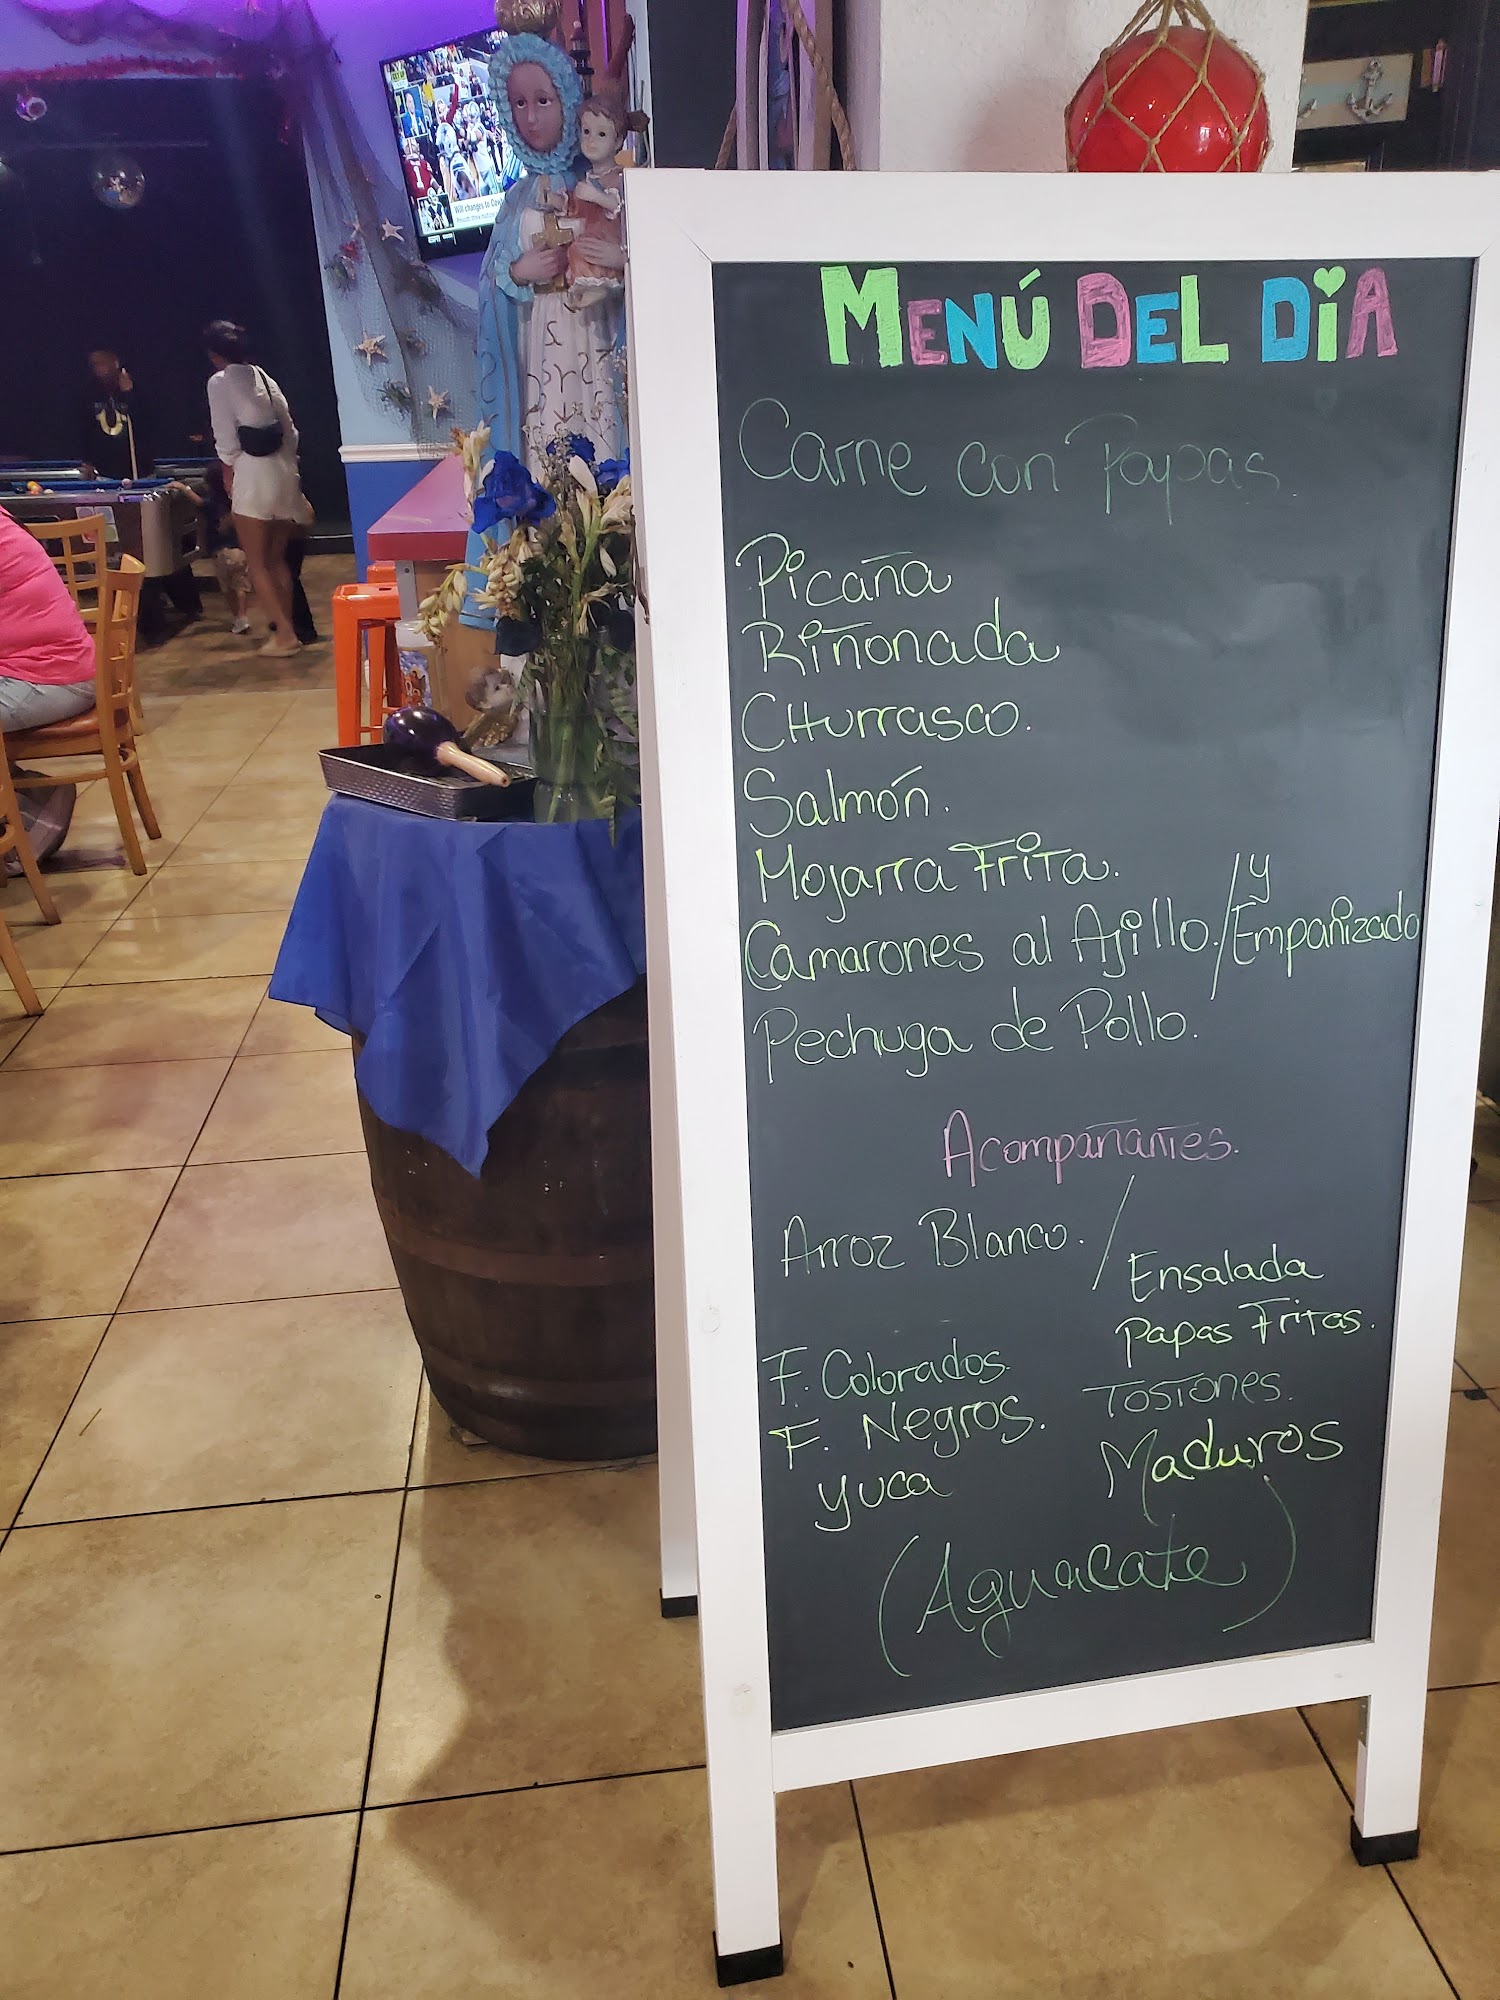 MENÚ DEL DiA
Carne con Papas.
Picaña
Riñonada
CHurrasco.
Salmón.
Mojarra Frita.
Camarones al Ajillo./ y Empañizado
Pechuga de Pollo.
Acompañantes.
Arroz Blanco. /
Ensalada
Papas Fritas.
F. Colorados.
Tostones.
F. Negros.
Maduros
Yuca
(Aguacate)
Will changes to Cow
ESPN